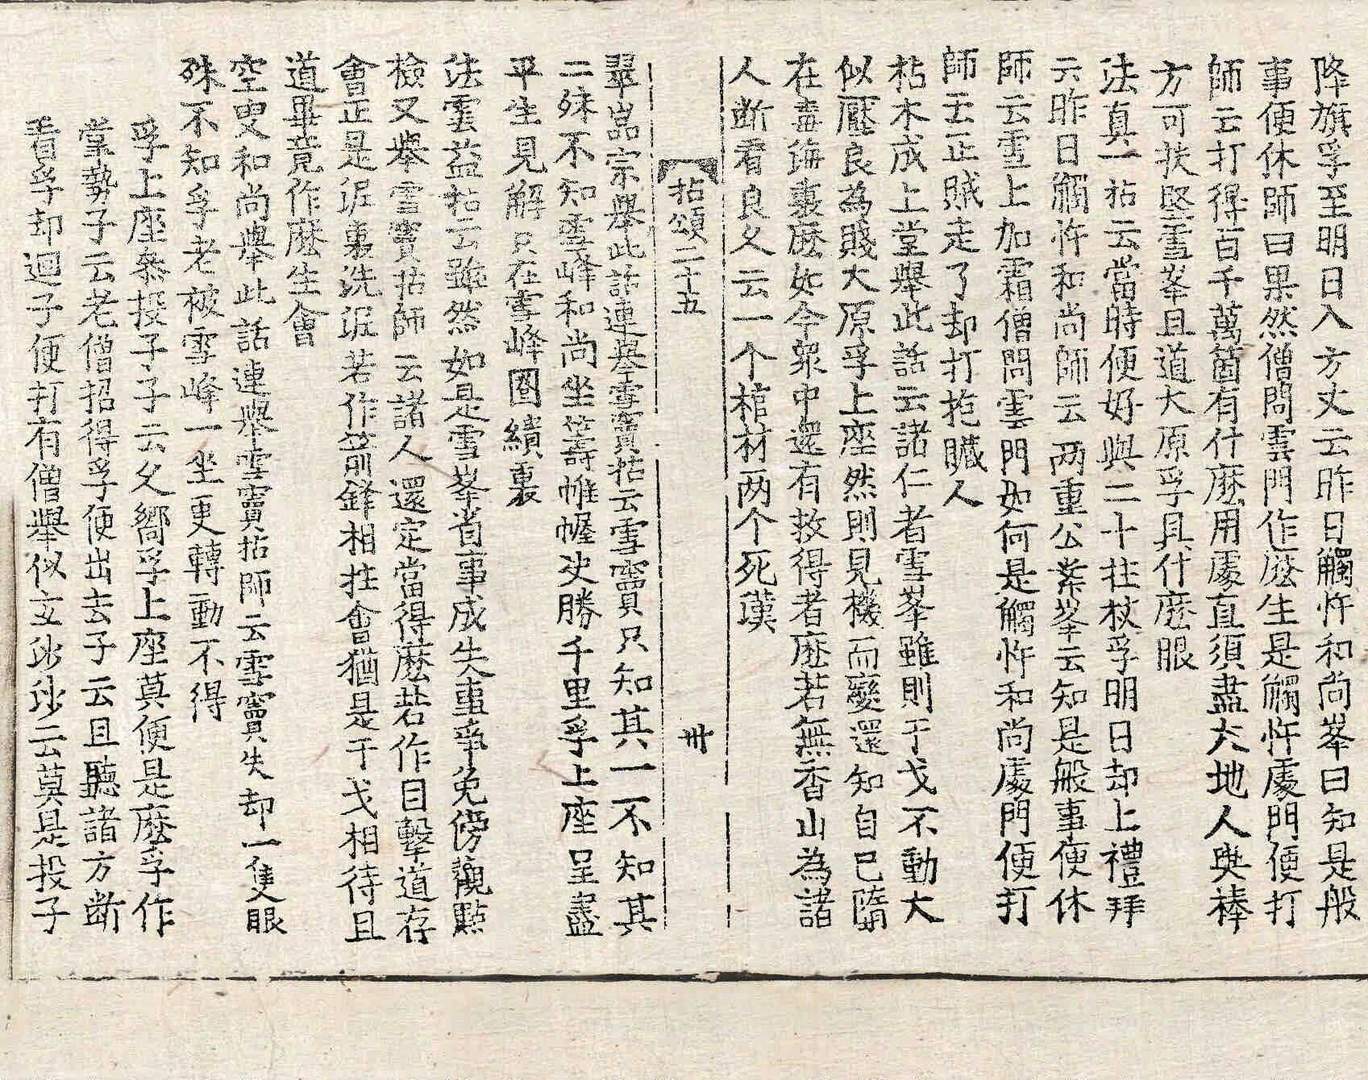 降旗孚至明日入方丈云昨日觸忤和尚峯曰知是般
事便休師曰果然僧問雲門作麽生是觸忤處門便打
師云打得百千萬箇有什麽用處直須盡大地人與棒
方可扶竪雪峯且道大原孚具什麽眼
法真一拈云當時便好與二十拄杖孚明日却上禮拜
云昨日觸忤和尚師云两重公案峯云知是般事便休
師云雪上加霜僧問雲門如何是觸忤和尚處門便打
師云正賊走了却打抱贓人
枯木成上堂舉此話云諸仁者雪峯雖則干戈不動大
似壓良為賤大原孚上座然則見機而變還知自已隨
在毒海裏麽如今眾中還有救得者麽若無香山為諸
人断看良久云一个棺材两个死漢
拈頌二十五
卅
翠嵓宗舉此話連舉雪竇拈云雪竇只知其一不知其
二殊不知雪峰和尚坐籌帷幄決勝千里孚上座呈盡
平生見解只在雪峰圈繢裏
法雲益拈云雖然如是雪峯省事成失事爭免傍觀點
檢又舉雪竇拈師云諸人還定當得麽若作目擊道存
會正是泥裏洗泥若作箭鋒相拄會猶是干戈相待且
道畢竟作麽生會
空叟和尚舉此話連舉雪竇拈師云雪竇失却一隻眼
殊不知孚老被雪峰一坐更轉動不得
孚上座叅投子子云久嚮孚上座莫便是麽孚作
掌勢子云老僧招得孚便出去子云且聽諸方断
看孚却迴子便打有僧舉似玄沙沙云莫是投子